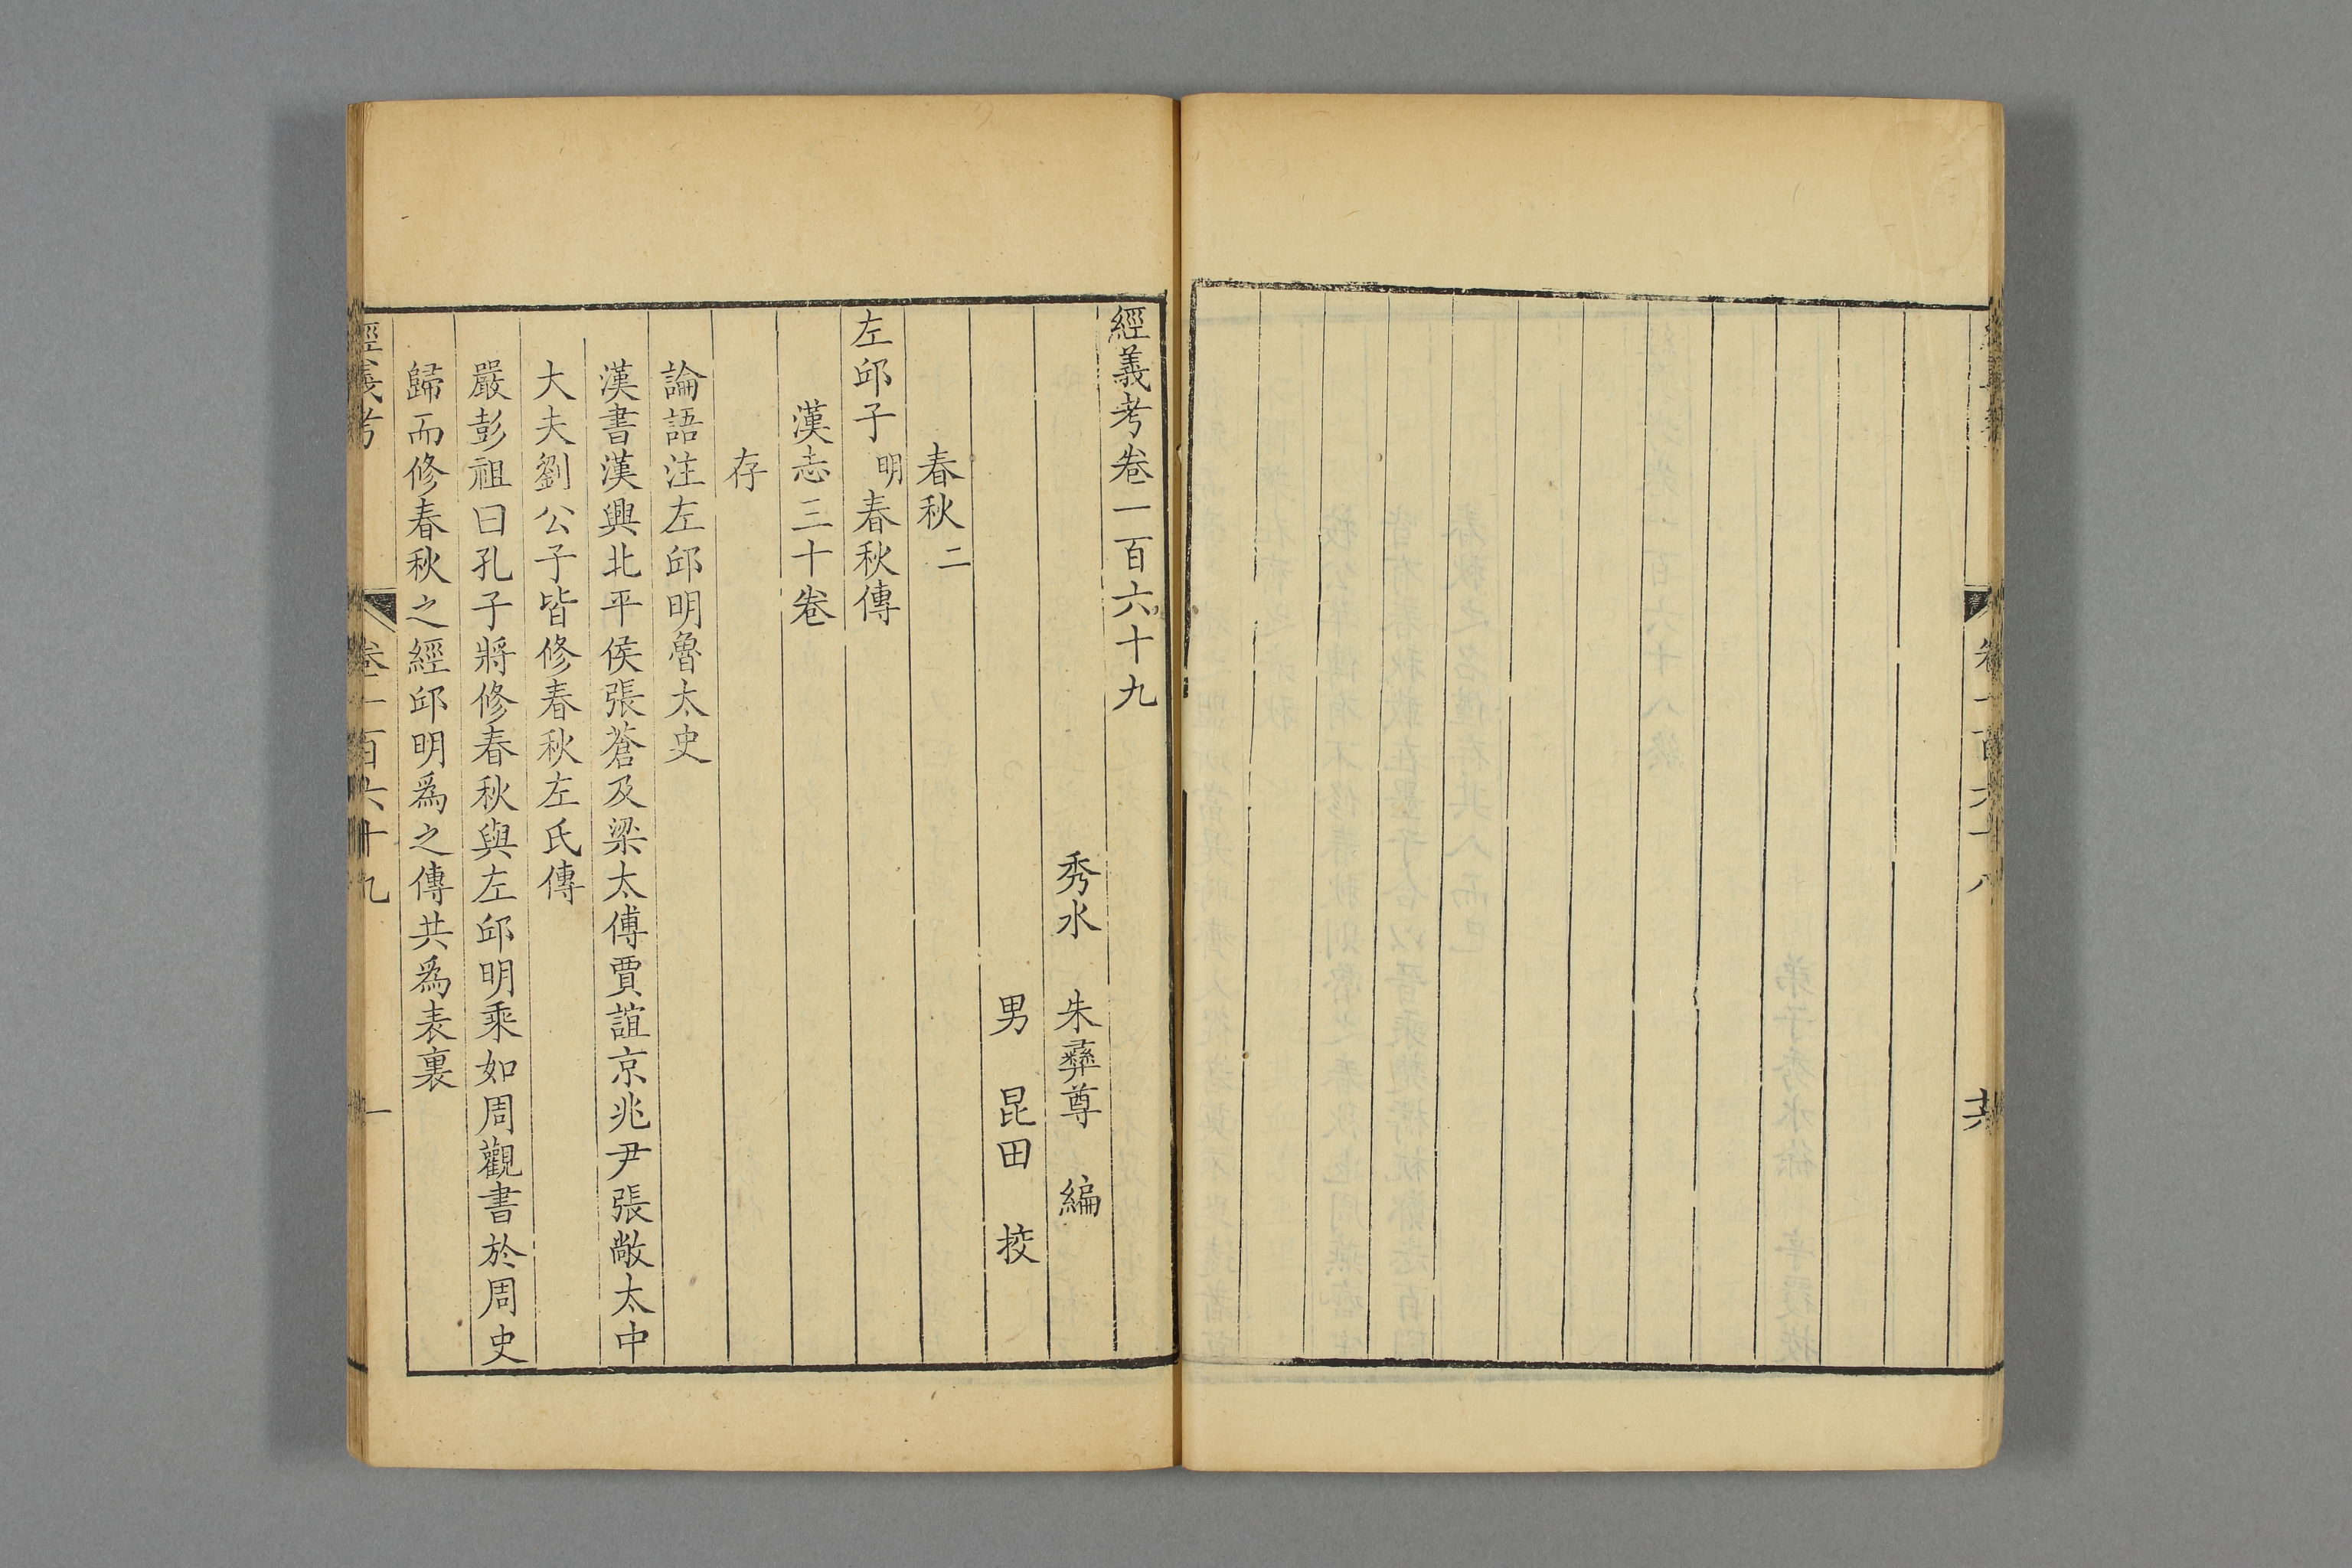 經義考卷一百六十九
秀水 朱彝尊 編
男 昆田 挍
春秋二
左邱子明春秋傳
漢志三十卷
存
論語注左邱明魯太史
漢書漢興北平侯張蒼及梁太傅賈誼京兆尹張敞太中
大夫劉公子皆修春秋左氏傳
嚴彭祖曰孔子將修春秋與左邱明乘如周觀書於周史
歸而修春秋之經邱明爲之傳共爲表裏
經義考 卷一百六十九 一